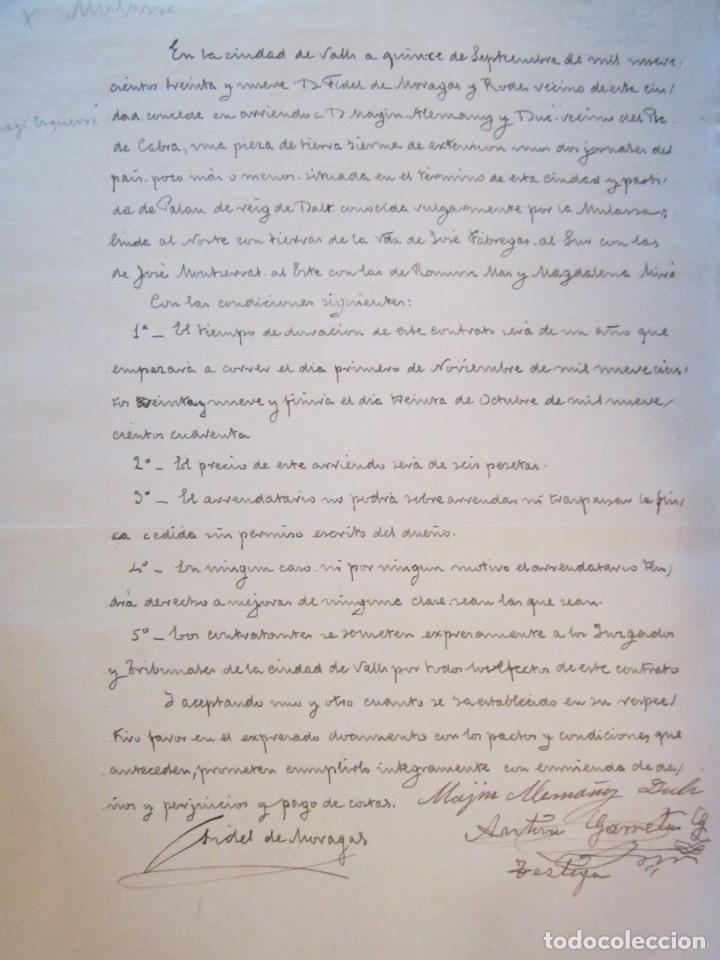 x Mulassa
En la ciudad de Valls a quince de Septiembre de mil nueve,
cientos treinta y nueve D. Fidel de Moragas y Rodes vecino de este ciu/
agi Esquerrá
dad concede en arriendo a D. Magin Alemany y Duc. vecino del Pla
de Cabra, una pieza de tierra yerma de extension unos dos jornales del
país. poco más o menos. situada en el término de esta ciudad y parti/
da de Palau de reig de Dalt. conocida vulgarmente por la Mulassa,
linda al Norte con tierras de la Vda de José Fábregas. al Sur con las
de José Montserrat. al Este con las de Ramon Mas y Magdalena Miró
Con las condiciones siguientes:
1ª – El tiempo de duracion de este contrato será de un año que
empezará a correr el dia primero de Noviembre de mil nuevecien/
tos treinta y nueve y finirá el dia treinta de Octubre de mil nueve,
cientos cuarenta
2ª – El precio de este arriendo será de seis pesetas.
3ª – El arrendatario no podrá sobre arrendar ni traspasar la fin,
ca cedida sin permiso escrito del dueño.
4ª – En ningun caso. ni por ningun motivo el arrendatario ten/
drá derecho a mejoras de ninguna clase. sean las que sean.
5ª – Los contratantes se someten expresamente a los Juzgados
y Tribunales de la ciudad de Valls por todos los efectos de este contrato
Y aceptando uno y otro cuanto se ha establecido en su respec/
tivo favor en el expresado documento con los pactos y condiciones que
anteceden, prometen cumplirlo integramente con enmienda de da,
ños y perjuicios y pago de costas.
Majin Alemañy Duch
Fidel de Moragas
Anton
Testigo
todocoleccion